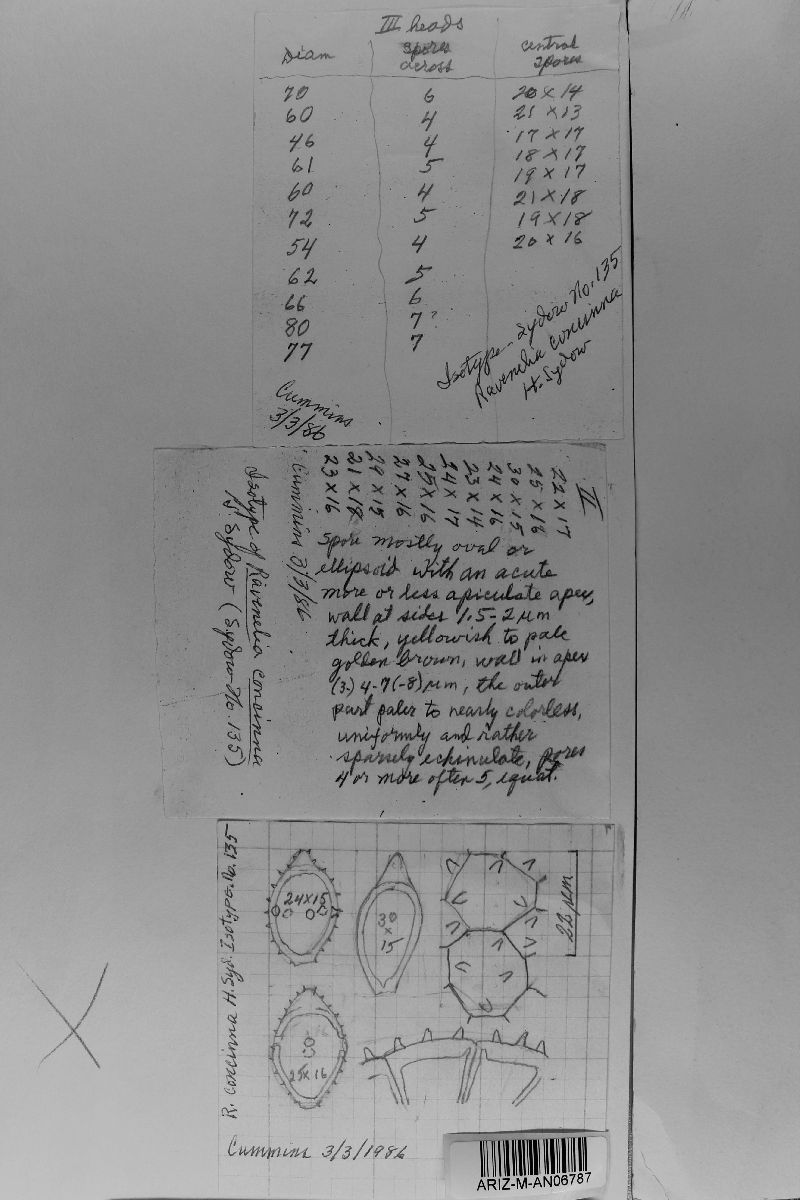 III heads
Diam spores across central spores
70 6 20 × 14
60 4 21 × 13
46 4 17 × 17
61 5 18 × 17
60 4 19 × 17
72 5 21 × 18
54 4 19 × 18
62 5 20 × 16
66 6
80 7?
77 7
Isotype - Sydow No. 135
Ravenelia concinna
H. Sydow
Cummins
3/3/86
II
22 × 17
25 × 16
30 × 15
24 × 16
23 × 14
24 × 17
25 × 16
27 × 16
24 × 15
21 × 18
23 × 16
Cummins 3/3/86
Isotype of Ravenelia concinna
H. Sydow (Sydow No. 135)
Spore mostly oval or
ellipsoid with an acute
more or less apiculate apex,
wall at sides 1.5-2 µm
thick, yellowish to pale
golden brown, wall in apex
(3-) 4-7 (-8) µm, the outer
part paler to nearly colorless,
uniformly and rather
sparsely echinulate, pores
4 or more often 5, equat.
R. concinna H. Syd. Isotype No. 135
24×15
30
×
15
22 µm
25×16
Cummins 3/3/1986
ARIZ-M-AN06787